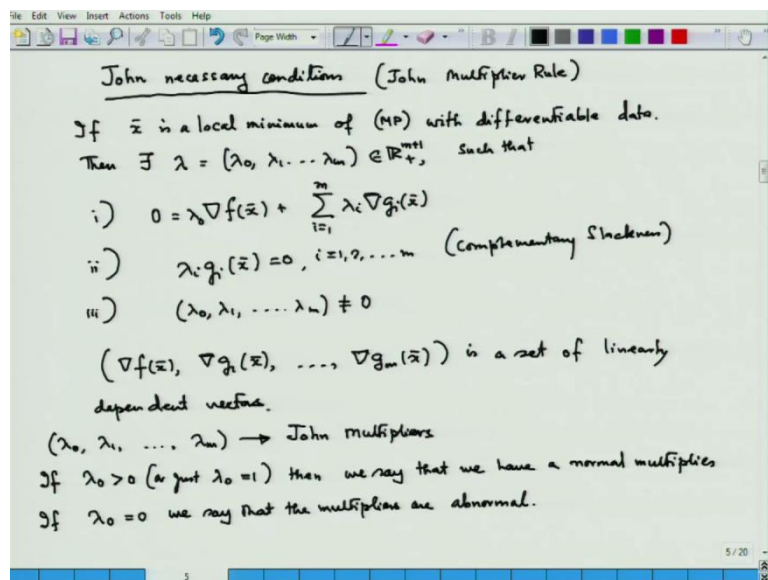 File Edit View Insert Actions Tools Help
Page Width
John necessary conditions (John Multiplier Rule)
If x̄ is a local minimum of (MP) with differentiable data.
Then ∃ λ = (λ₀, λ₁ ... λₘ) ∈ ℝ₊ᵐ⁺¹, such that
i) 0 = λ₀∇f(x̄) + ∑ᵢ₌₁ᵐ λᵢ∇gᵢ(x̄)
ii) λᵢgᵢ(x̄) = 0, i = 1, 2, ... m (Complementary Slackness)
iii) (λ₀, λ₁, .... λₘ) ≠ 0
(∇f(x̄), ∇g₁(x̄), ...., ∇gₘ(x̄)) is a set of linearly
dependent vectors.
(λ₀, λ₁, ..., λₘ) → John multipliers
If λ₀ > 0 (or just λ₀ = 1) then we say that we have a normal multiplies
If λ₀ = 0 we say that the multipliers are abnormal.
5 / 20
5